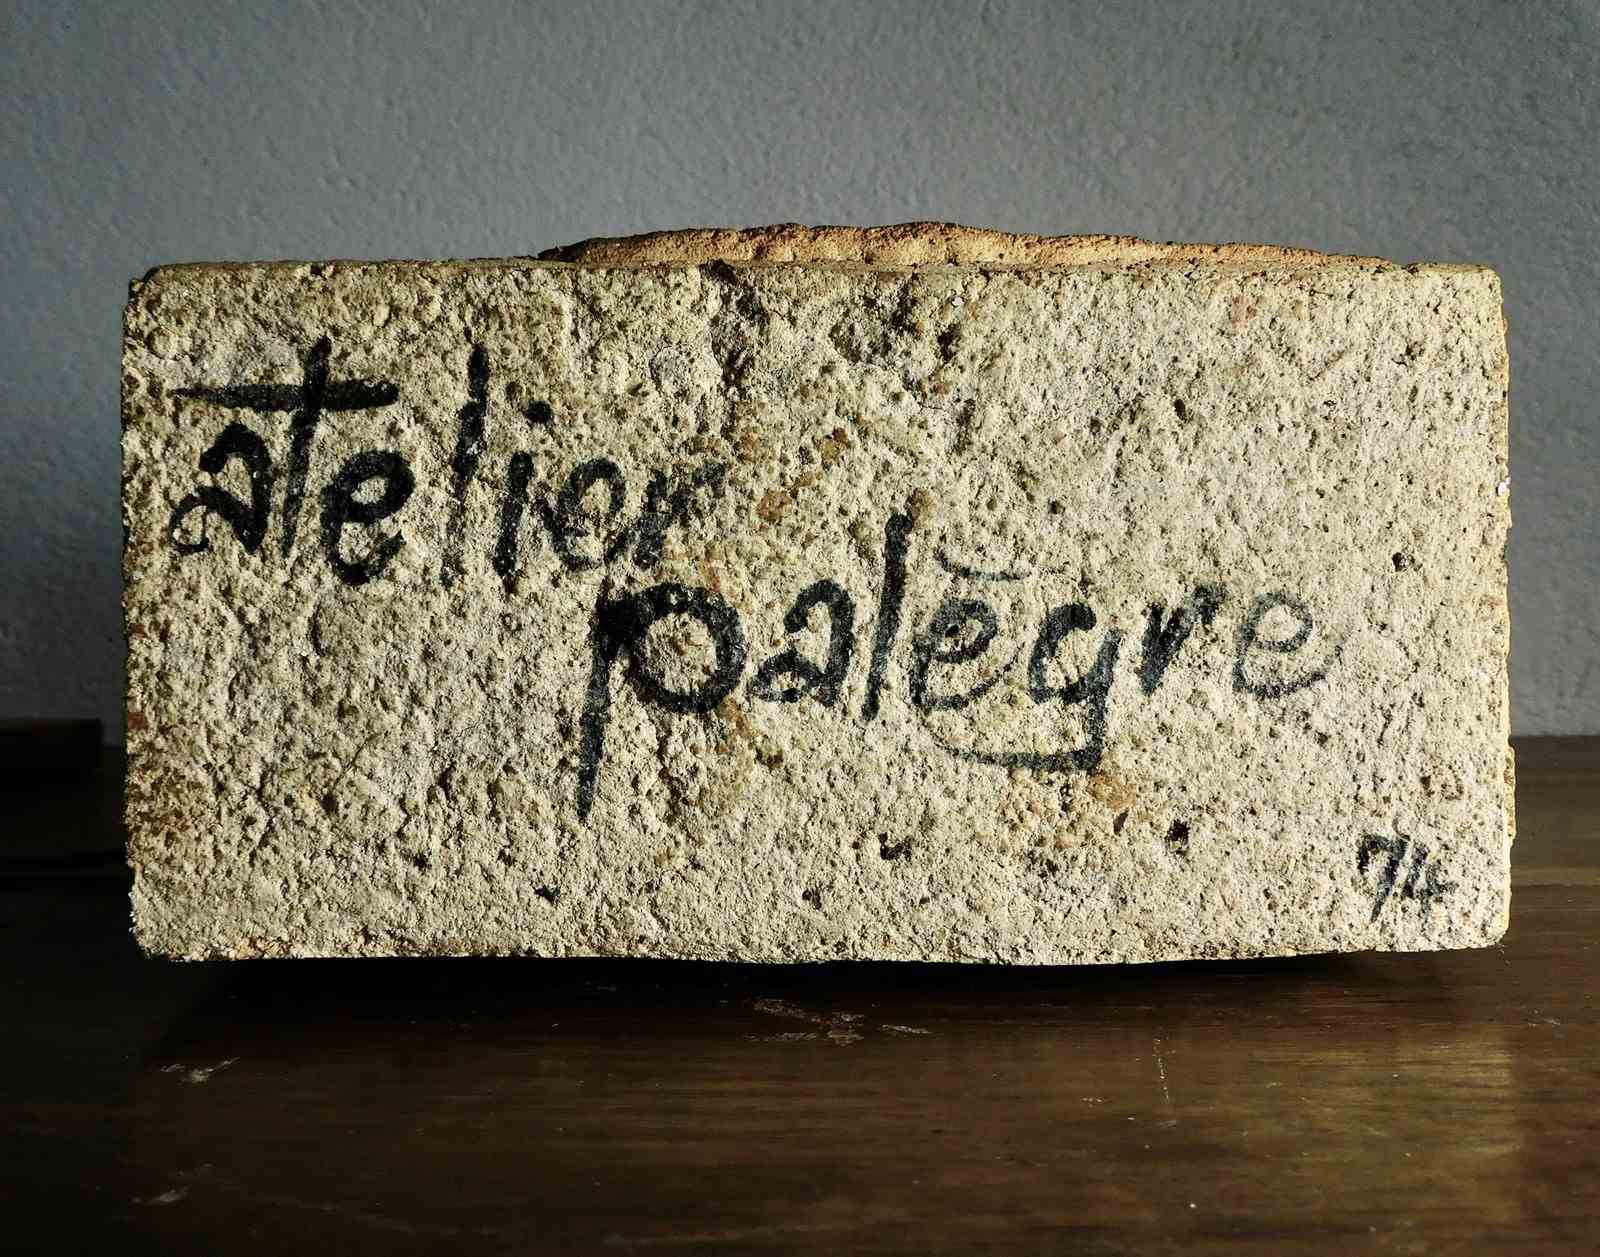 atelier
palēgre
74